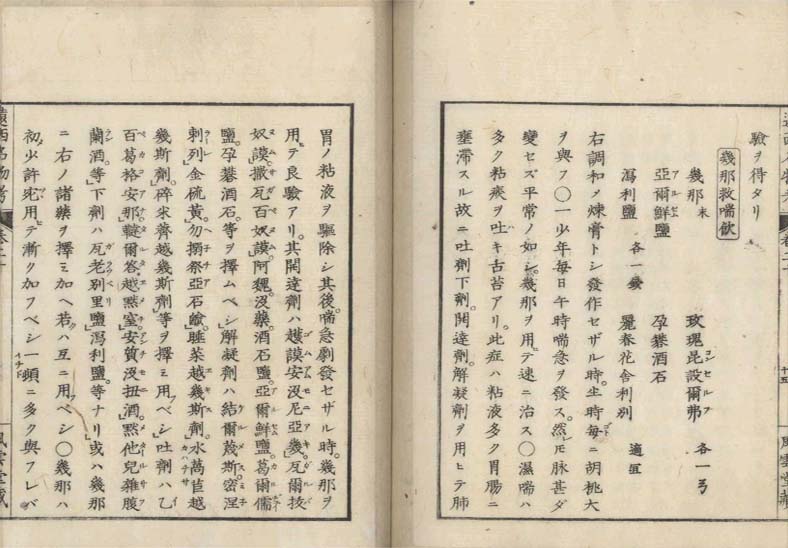 驗ヲ得タリ
幾那救喘飲
幾那末　玫瑰昆設爾弗　各一弓
亞爾鮮鹽　孕礬酒石
瀉利鹽　各一錢　罌春花舎利別　適宜
右調和〆煉膏トシ發作セザル時。半時每ニ胡桃大
ヲ與フ〇一少年每日午時喘急ヲ發ス。然𪜈脉甚ダ
變セズ平常ノ如シ。幾那ヲ用テ速ニ治ス〇濕喘ハ
多ク粘痰ヲ吐キ古苔アリ。此症ハ粘液多ク胃腸ニ
壅滯スル故ニ吐劑下劑。開達劑。解凝劑ヲ用ヒテ肺
胃ノ粘液ヲ驅除シ其後。喘急劇發セザル時。幾那ヲ
用テ良驗アリ。其開達劑ハ護謨安没尼亞幾。瓦爾抜
奴謨。撒瓦百奴謨。阿魏。没藥。酒石鹽。亞爾鮮鹽。葛爾儒
鹽。孕礬酒石。等ヲ擇ムベシ」解凝劑ハ結爾蔑斯。密涅
剌列」金硫黄。勿搦祭亞石鹼。睡菜越幾斯劑。水萵苣越
幾斯劑。碎米薺越幾斯劑等ヲ擇ミ用フベシ」吐劑ハ乙
百葛格安那。鞑爾答。越黙室。安質没扭酒。黙他兒雜腹
蘭酒。等」下劑ハ瓦老別里鹽。瀉利鹽。等ナリ」或ハ幾那
ニ右ノ諸藥ヲ擇ミ加ヘ。若クハ互ニ用フベシ〇幾那ハ
初少許宛用テ漸ク加フベシ一頓ニ多ク與フレバ
十五
風雲堂藏
遠西名物考
卷二十
風雲堂藏